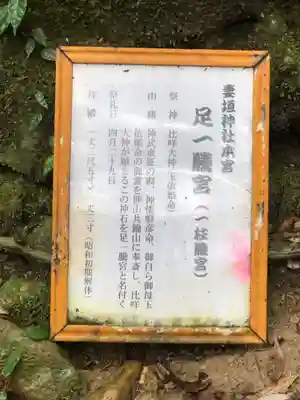 妻垣神社本宮
足一騰宮（一柱騰宮）
祭神 比咩大神（玉依姫命）
由緒 神武東征の砌、神倭磐彦命、御自ら御母玉
依姫命の御霊を此山共鐘山に奉斎し、比咩
大神が騰るこの神石を足一騰宮と名付く
祭礼日 四月二十九日
拝殿 （丈三尺五寸 丈二寸（昭和初期解体）